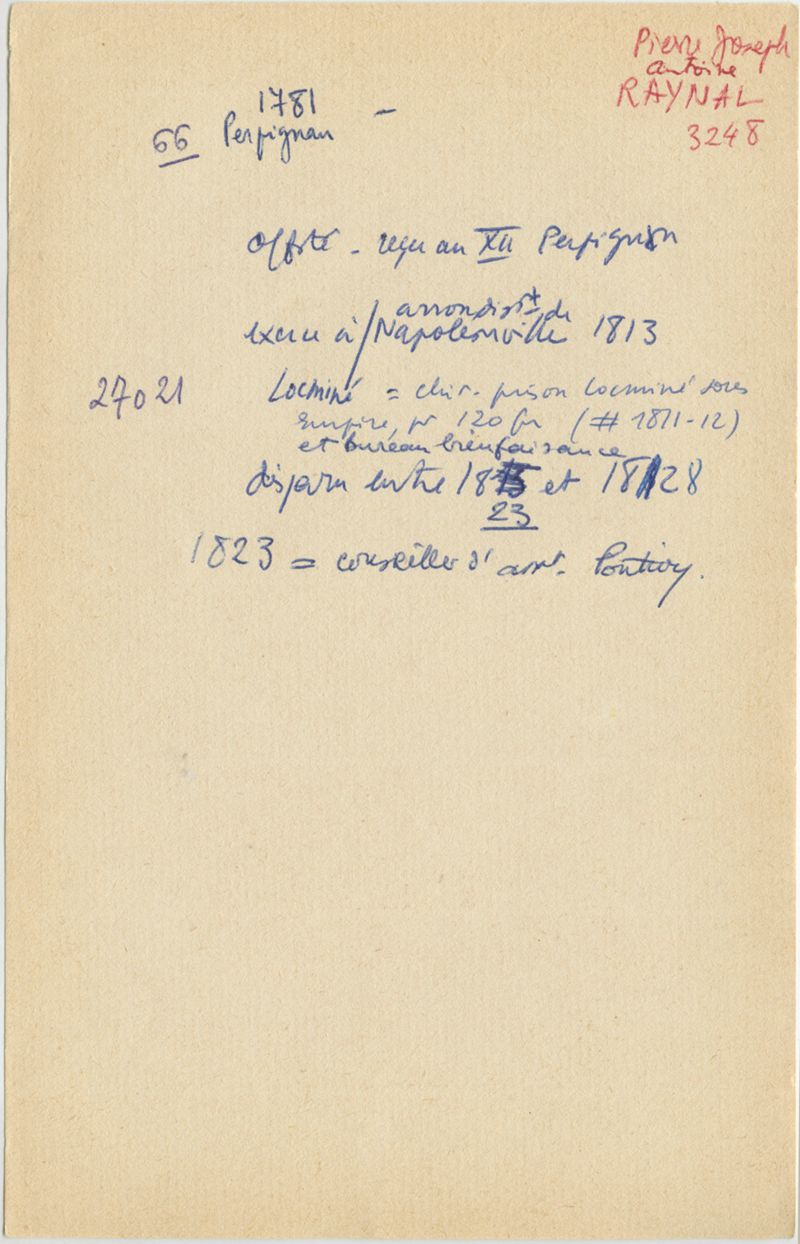 Pierre Joseph
Antoine
RAYNAL
3248
1781 -
66 Perpignan
Off. sté - reçu an XII Perpignan
arrondist de
exerce à / Napoléonville 1813
27021 Locminé = chir. prison Locminé sous
Empire, pr 120 fr (# 1811-12)
et bureau bienfaisance
disparu entre 18 et 1828
23
1823 = conseiller d'arrt. Pontivy.